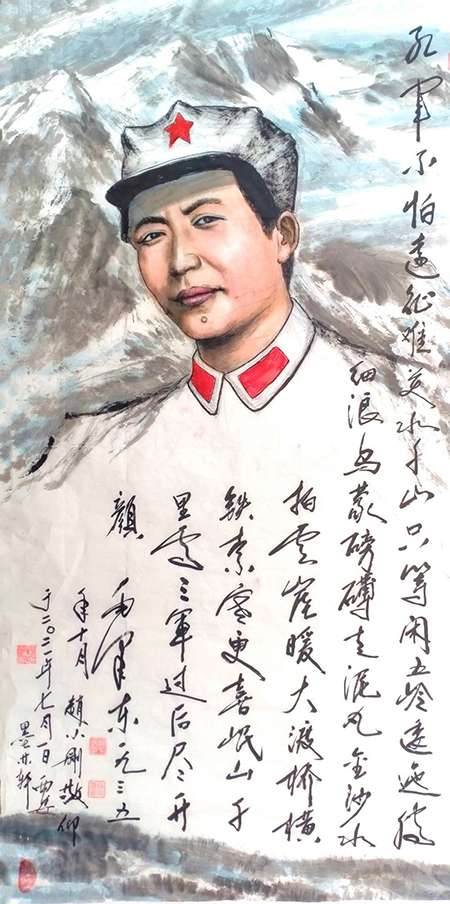 红军不怕远征难万水千山只等闲五岭逶迤腾
细浪乌蒙磅礴走泥丸金沙水
拍云崖暖大渡桥横
铁索寒更喜岷山千
里雪三軍过后尽开
颜 毛泽东一九三五
年十月 趙小刚敬仰
于二〇二一年七月一日